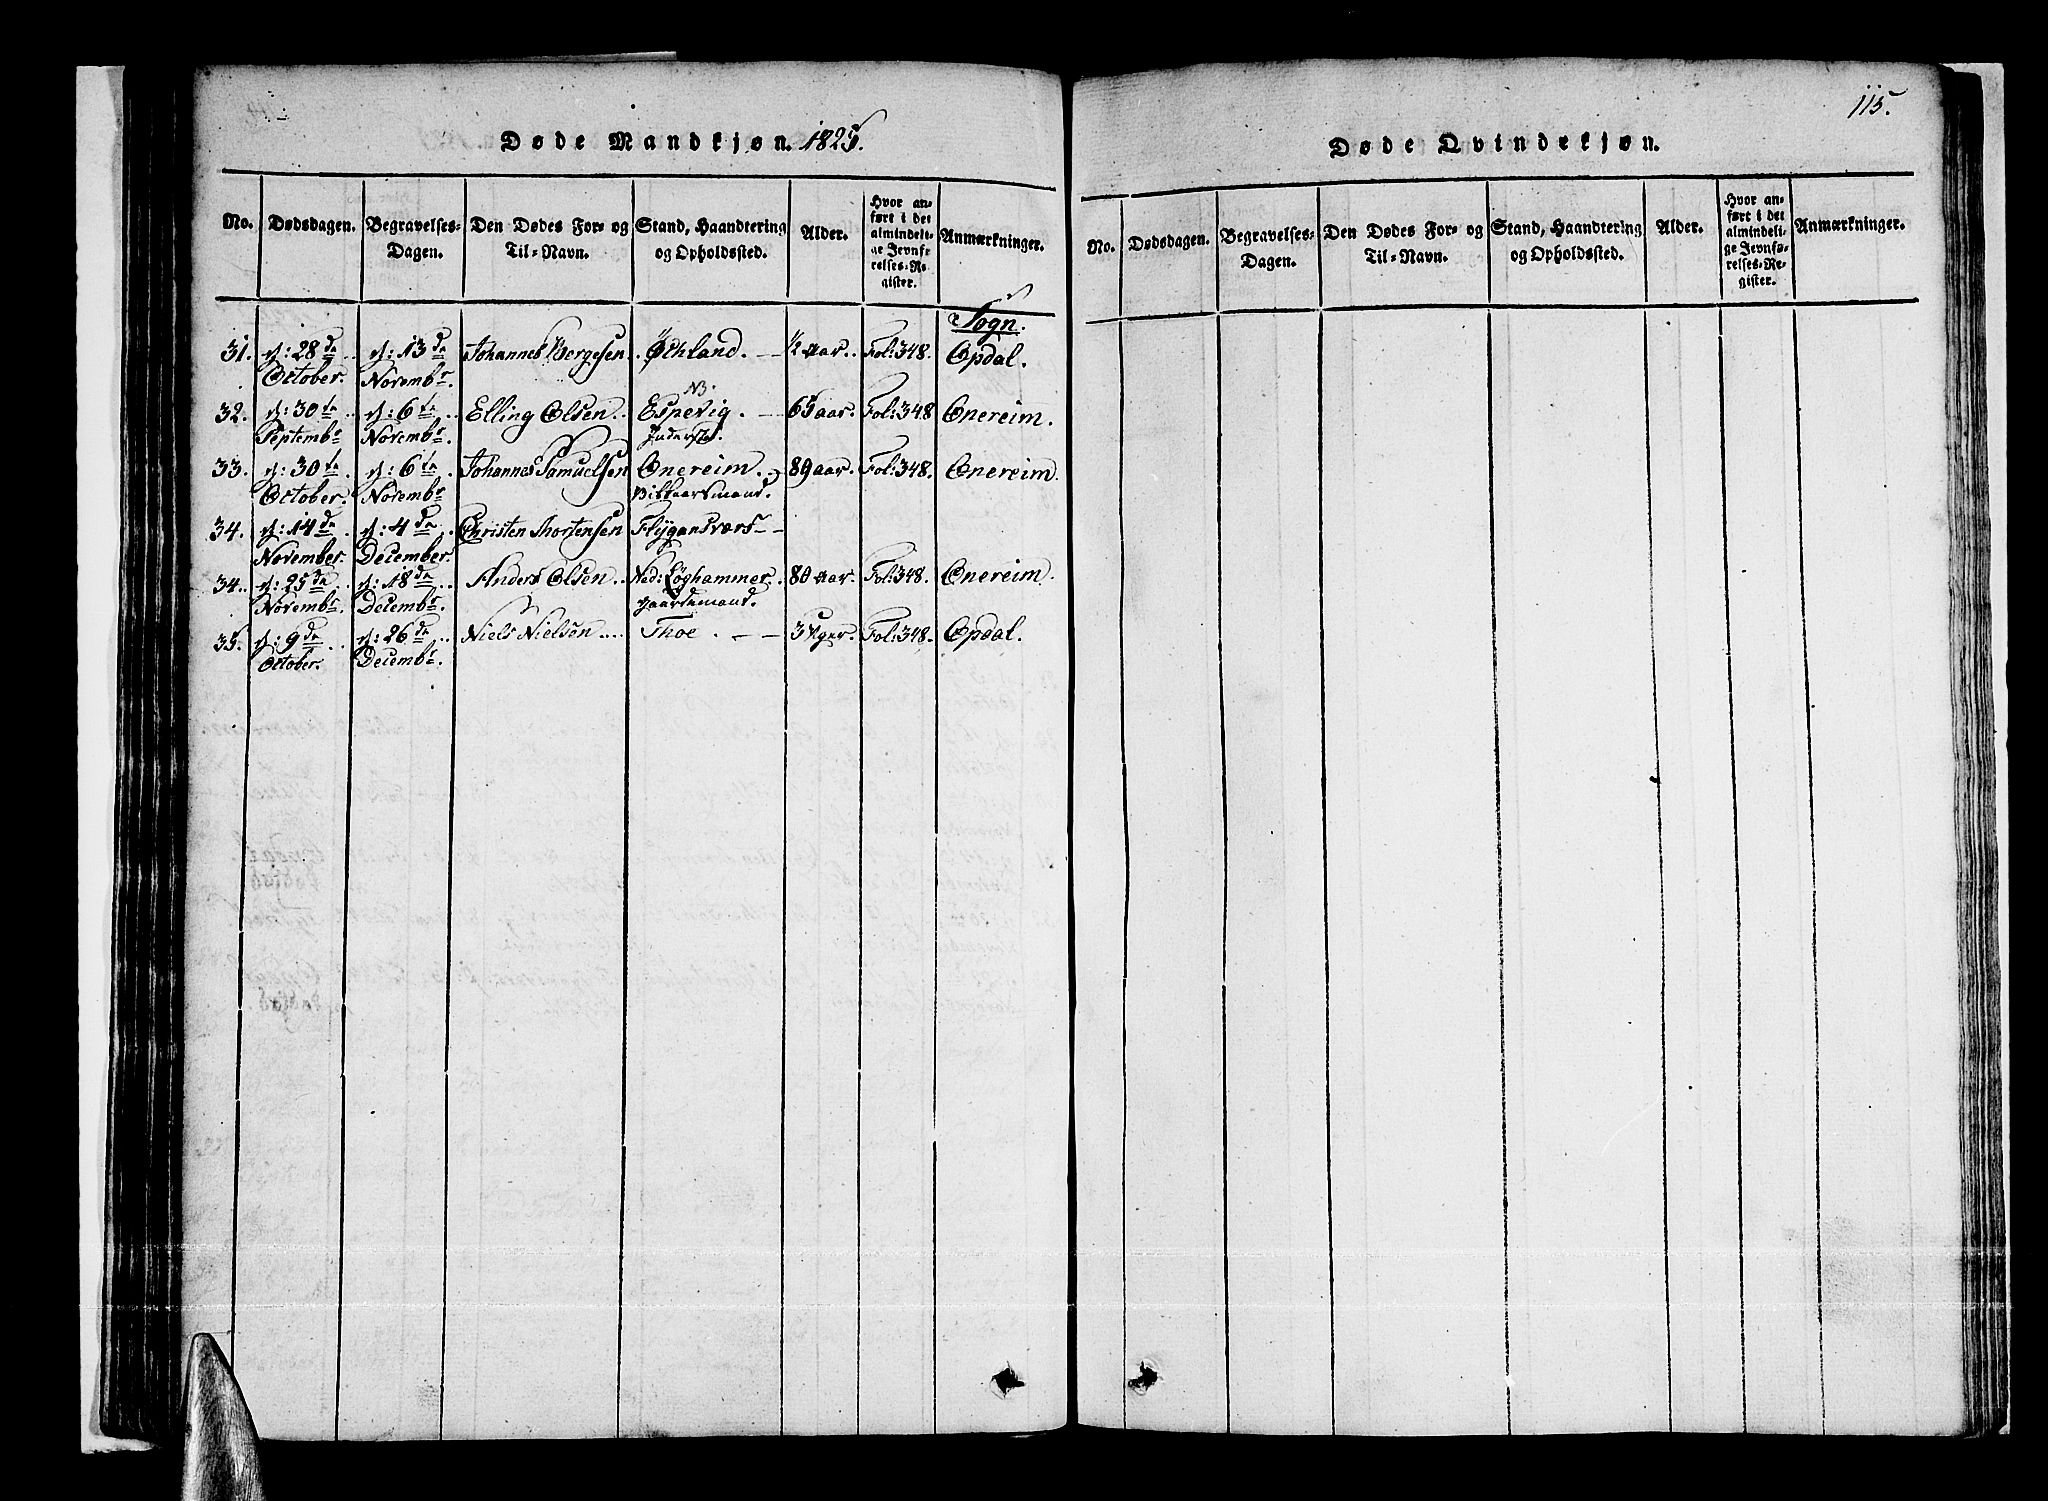 Døde Mandkjøn. 1825.
No. Dødsdagen. Begravelses-Dagen. Den Dødes For- og Til-Navn. Stand, Haandtering og Opholdssted. Alder. Hvor anført i det almindelige Jevnførelses-Register. Anmærkninger.
Sogn.
31. d: 28de d: 13de Johannes Børgesen Øchland. ½ aar. Fol: 348. Opdal.
October. Novembr.
NB.
32. d: 30te d: 6te Elling Olsen Espevig. 65 aar. Fol: 348 Onereim.
Septembr Novembr. Inderste.
33. d: 30te d: 6te Johannes Samuelsen Onereim. 89 aar. Fol: 348. Onereim.
October. Novembr
34. d: 14de d: 4de Christen Mortensen Flygansvær
November. December.
34. d: 25de d: 18de Anders Olsen Ned: Løghammer. 80 aar. Fol: 348. Onereim.
Novembr. Decembr. gaardemand.
35. d: 9de d: 26de Niels Nielsen Thoe. 3 Uger. Fol: 348. Opdal.
October. Decembr.
115.
Døde Qvindekjøn.
No. Dødsdagen. Begravelses-Dagen. Den Dødes For- og Til-Navn. Stand, Haandtering og Opholdssted. Alder. Hvor anført i det almindelige Jevnførelses-Register. Anmærkninger.